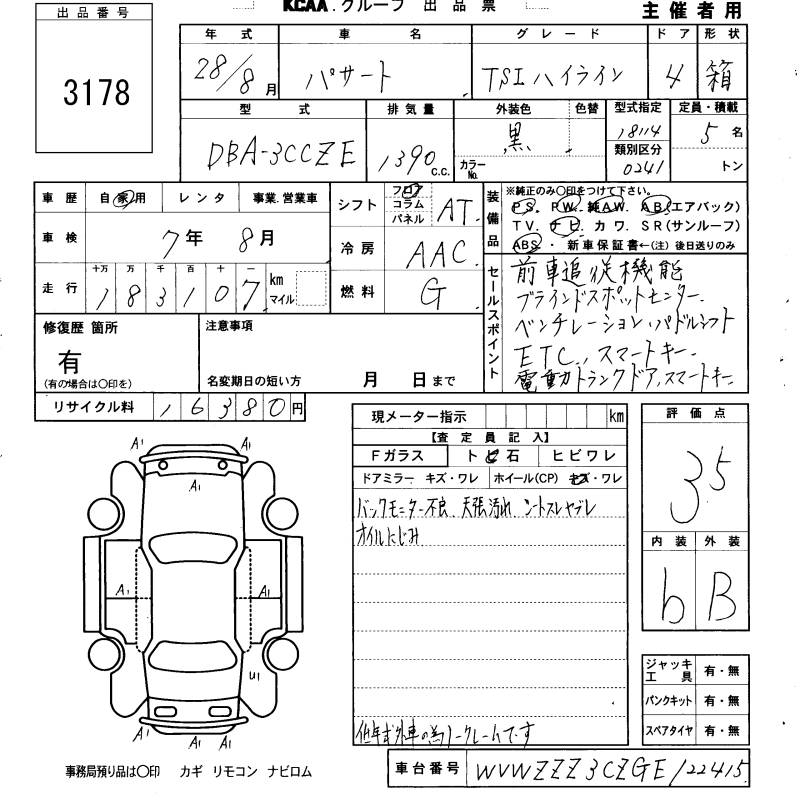 KCAA.グループ 出品票
主催者用
出品番号
3178
年式 車名 グレード ドア 形状
28/8月 パサート TSIハイライン 4 箱
型式 排気量 外装色 色替 型式指定 定員・積載
DBA-3CCZE 1390 c.c. 黒 カラーNo. 18114 5名
類別区分
0241 トン
車歴 自家用 レンタ 事業.営業車
車検 7年 8月
走行 十万 万 千 百 十 一 km マイル
183107
シフト フロア コラム パネル AT
冷房 AAC
燃料 G
装備品
※純正のみ○印をつけて下さい。
PS. PW. 純AW. AB(エアバック)
TV. ナビ. カワ. SR(サンルーフ)
ABS・新車保証書←(注)後日送りのみ
セールスポイント
前車追従機能
ブラインドスポットセンター.
ベンチレーション,パドルシフト
ETC,, スマートキー.
電動トランクドア,スマートキー.
修復歴 箇所
有
(有の場合は○印を)
注意事項
名変期日の短い方 月 日まで
リサイクル料 16380円
現メーター指示 km
【査定員記入】
Fガラス トビ石 ヒビワレ
ドアミラー キズ・ワレ ホイール(CP) キズ・ワレ
バックモニター不良、天張汚れ、シートスレヤブレ
オイルにじみ
低年式外車の為ノークレームです
評価点
35
内装 外装
b B
ジャッキ工具 有・無
パンクキット 有・無
スペアタイヤ 有・無
A1 A1
A1
A1 A1
U1
A1 A1 A1
事務局預り品は○印 カギ リモコン ナビロム
車台番号 WVWZZZ3CZGE122415